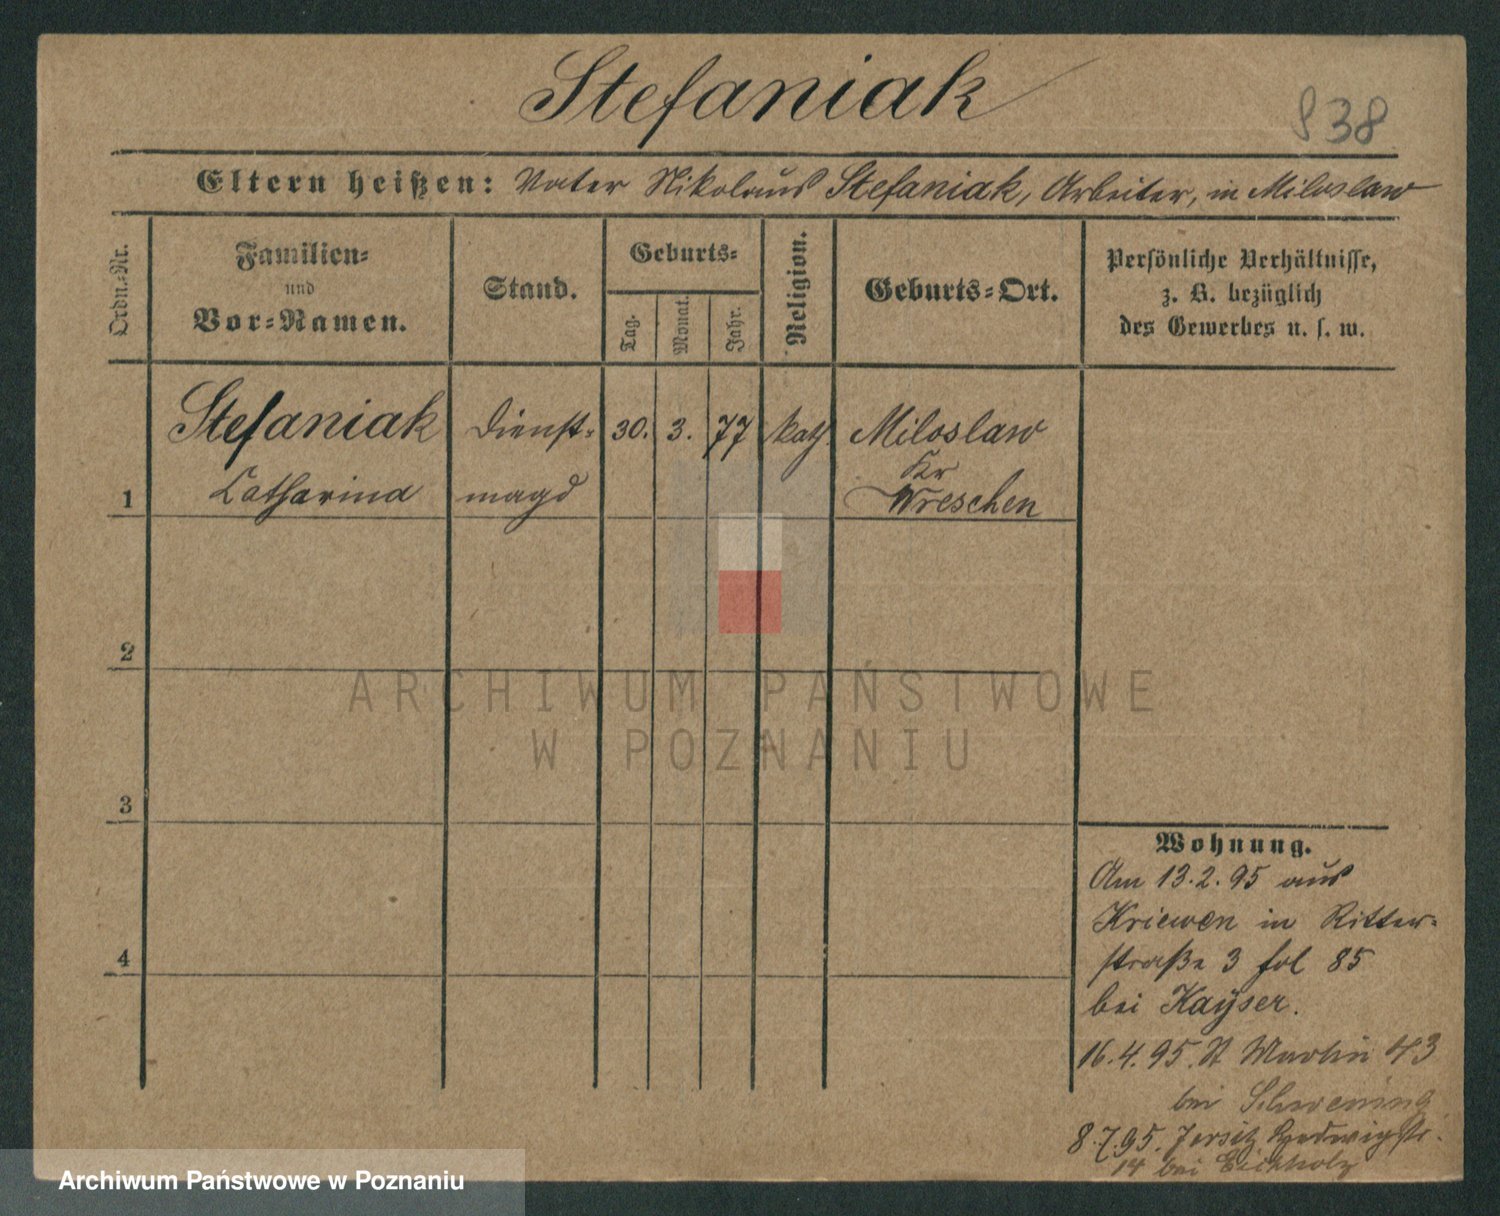 Stefaniak
838
Eltern heißen: Vater Nikolaus Stefaniak, Arbeiter, in Miloslaw
Ordn.-Nr.
Familien-
und
Vor-Namen.
Stand.
Geburts-
Tag.
Monat.
Jahr.
Religion.
Geburts-Ort.
Persönliche Verhältnisse,
z. B. bezüglich
des Gewerbes u. s. w.
Stefaniak Dienst- 30. 3. 77 kath. Miloslaw
Kr
1 Catharina magd Wreschen
2
3
4
Wohnung.
Am 13.2.95 aus
Kriewen in Ritter-
straße 3 fol 85
bei Kayser.
16.4.95. St Martin 43
bei
8.7.95. Jersitz Hedwigstr.
14 bei Eichholz
ARCHIWUM PAŃSTWOWE
W POZNANIU
Archiwum Państwowe w Poznaniu